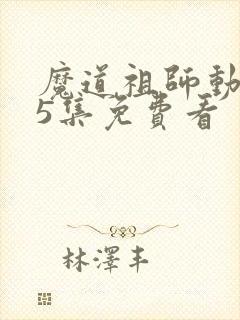 魔道祖師動
5集免費看
林澤丰